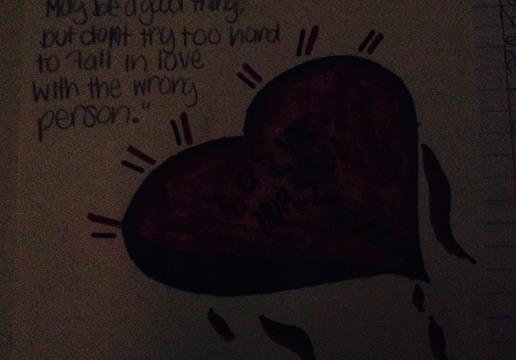 May be a good thing,
but don't try too hard
to fall in love
with the wrong
person."
LOVE